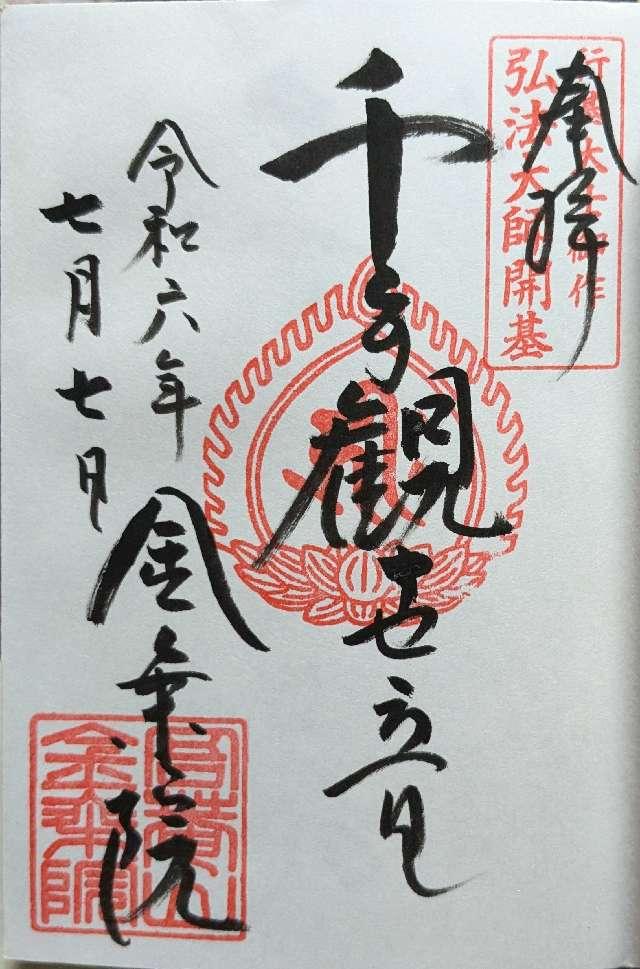 奉拝
行基大士御作
弘法大師開基
千手觀世音
令和六年
七月七日
金乗院
吾菴山
金乗院